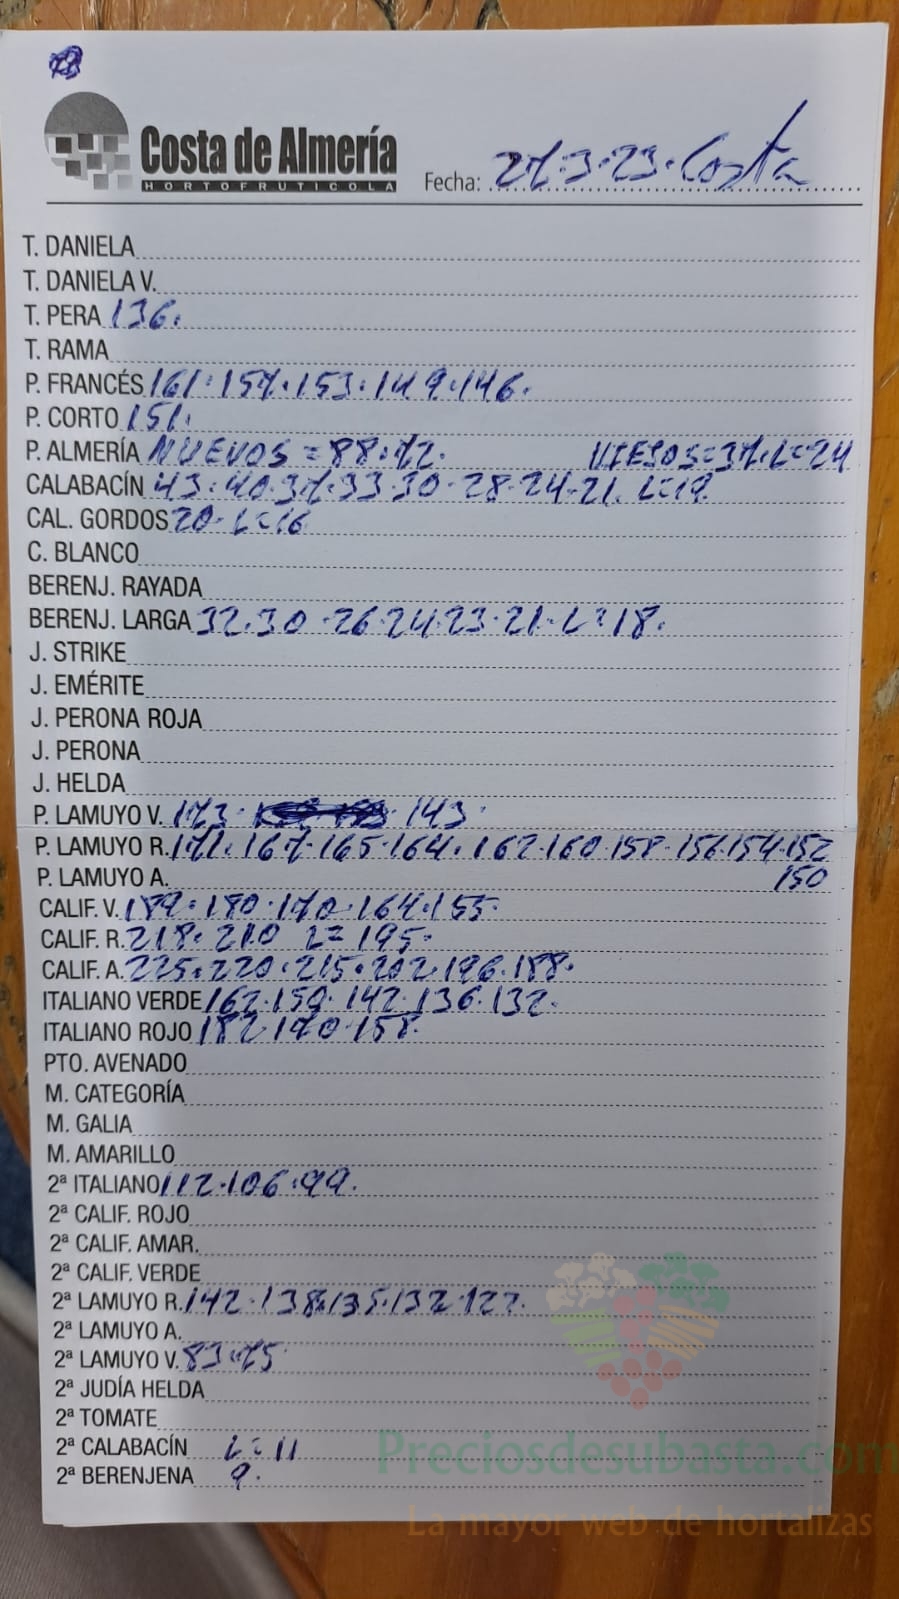 Costa de Almería
HORTOFRUTICOLA
Fecha: 27.3.23. Costa
T. DANIELA
T. DANIELA V.
T. PERA 136.
T. RAMA
P. FRANCÉS 161.157.153.149.146.
P. CORTO 151.
P. ALMERÍA NUEVOS=88.72. VIEJOS=37.L=24
CALABACÍN 43.40.37.33.30.28.24.21. L=19
CAL. GORDOS 20. L=16
C. BLANCO
BERENJ. RAYADA
BERENJ. LARGA 32.30.26.24.23.21.L=18.
J. STRIKE
J. EMÉRITE
J. PERONA ROJA
J. PERONA
J. HELDA
P. LAMUYO V. 173. 143.
P. LAMUYO R. 171.167.165.164.162.160.158.156.154.152
P. LAMUYO A. 150
CALIF. V. 189.180.170.164.155.
CALIF. R. 218.210 L=195.
CALIF. A. 225.220.215.202.196.188.
ITALIANO VERDE 162.150.142.136.132.
ITALIANO ROJO 182.170.158.
PTO. AVENADO
M. CATEGORÍA
M. GALIA
M. AMARILLO
2ª ITALIANO 112.106.99.
2ª CALIF. ROJO
2ª CALIF. AMAR.
2ª CALIF. VERDE
2ª LAMUYO R. 142.138.135.132.127.
2ª LAMUYO A.
2ª LAMUYO V. 83.75
2ª JUDÍA HELDA
2ª TOMATE
2ª CALABACÍN L=11
2ª BERENJENA 9.
Preciosdesubasta.com
La mayor web de hortalizas